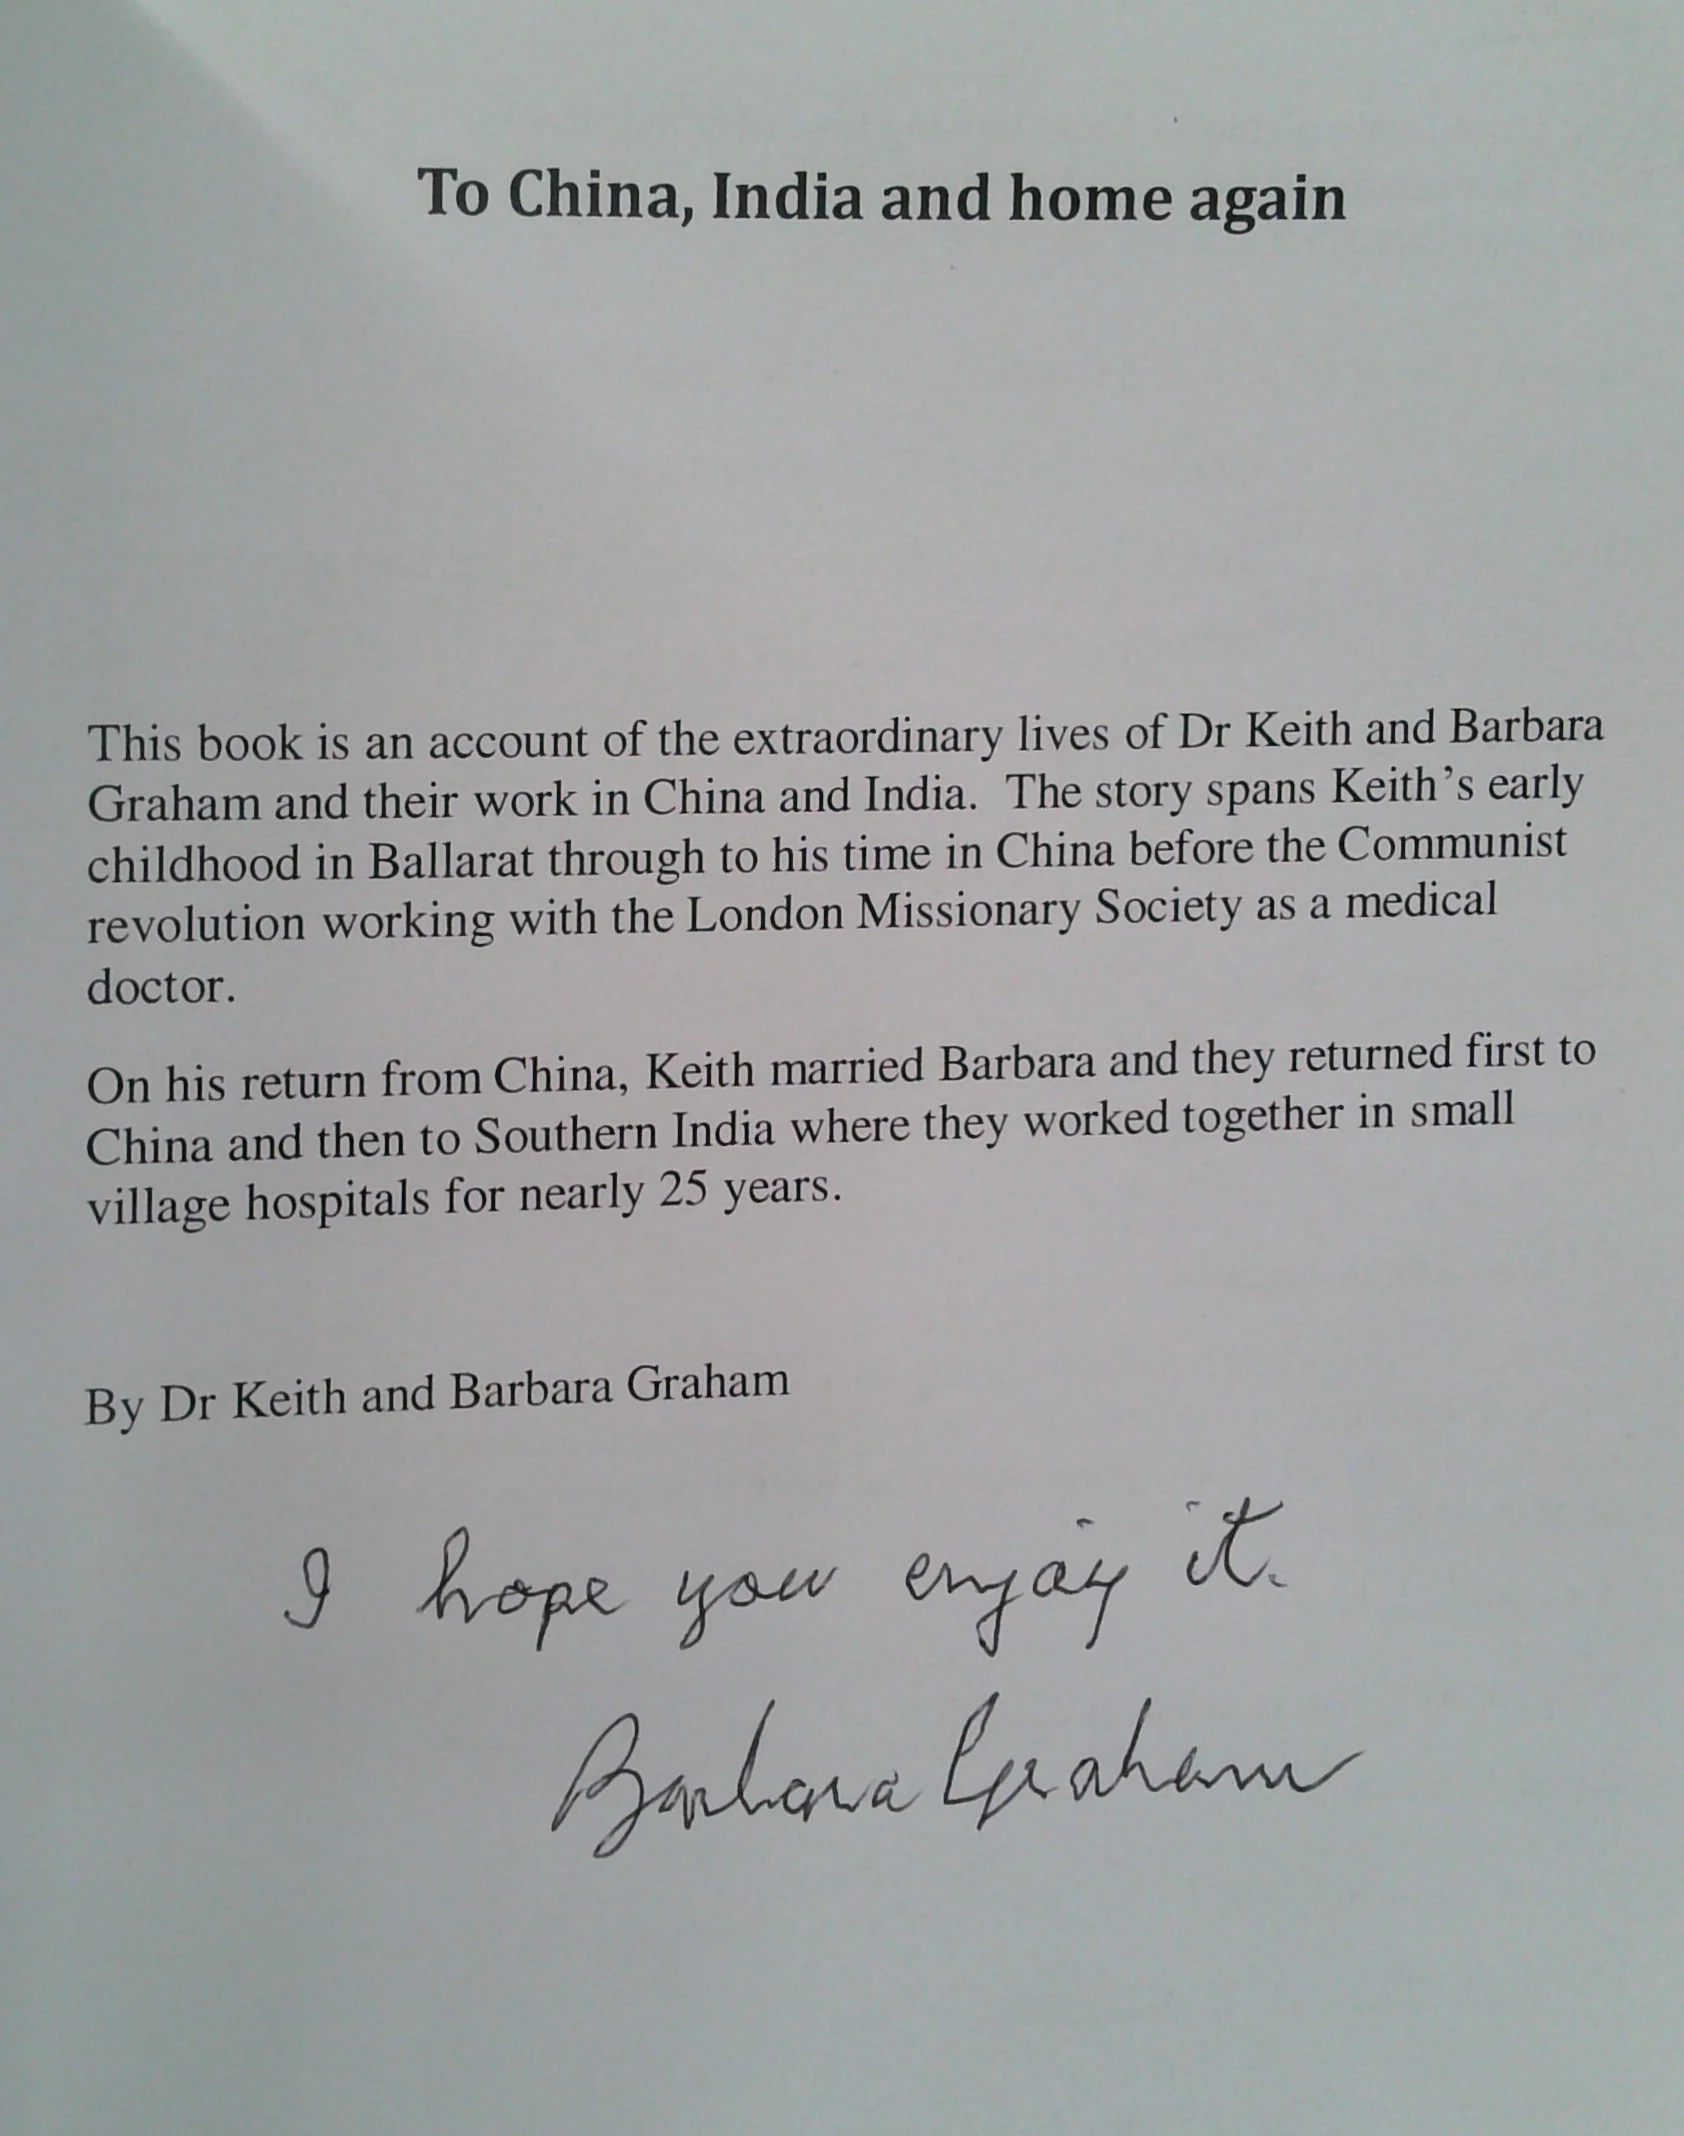 To China, India and home again
This book is an account of the extraordinary lives of Dr Keith and Barbara
Graham and their work in China and India.  The story spans Keith's early
childhood in Ballarat through to his time in China before the Communist
revolution working with the London Missionary Society as a medical
doctor.
On his return from China, Keith married Barbara and they returned first to
China and then to Southern India where they worked together in small
village hospitals for nearly 25 years.
By Dr Keith and Barbara Graham
I hope you enjoy it.
Barbara Graham